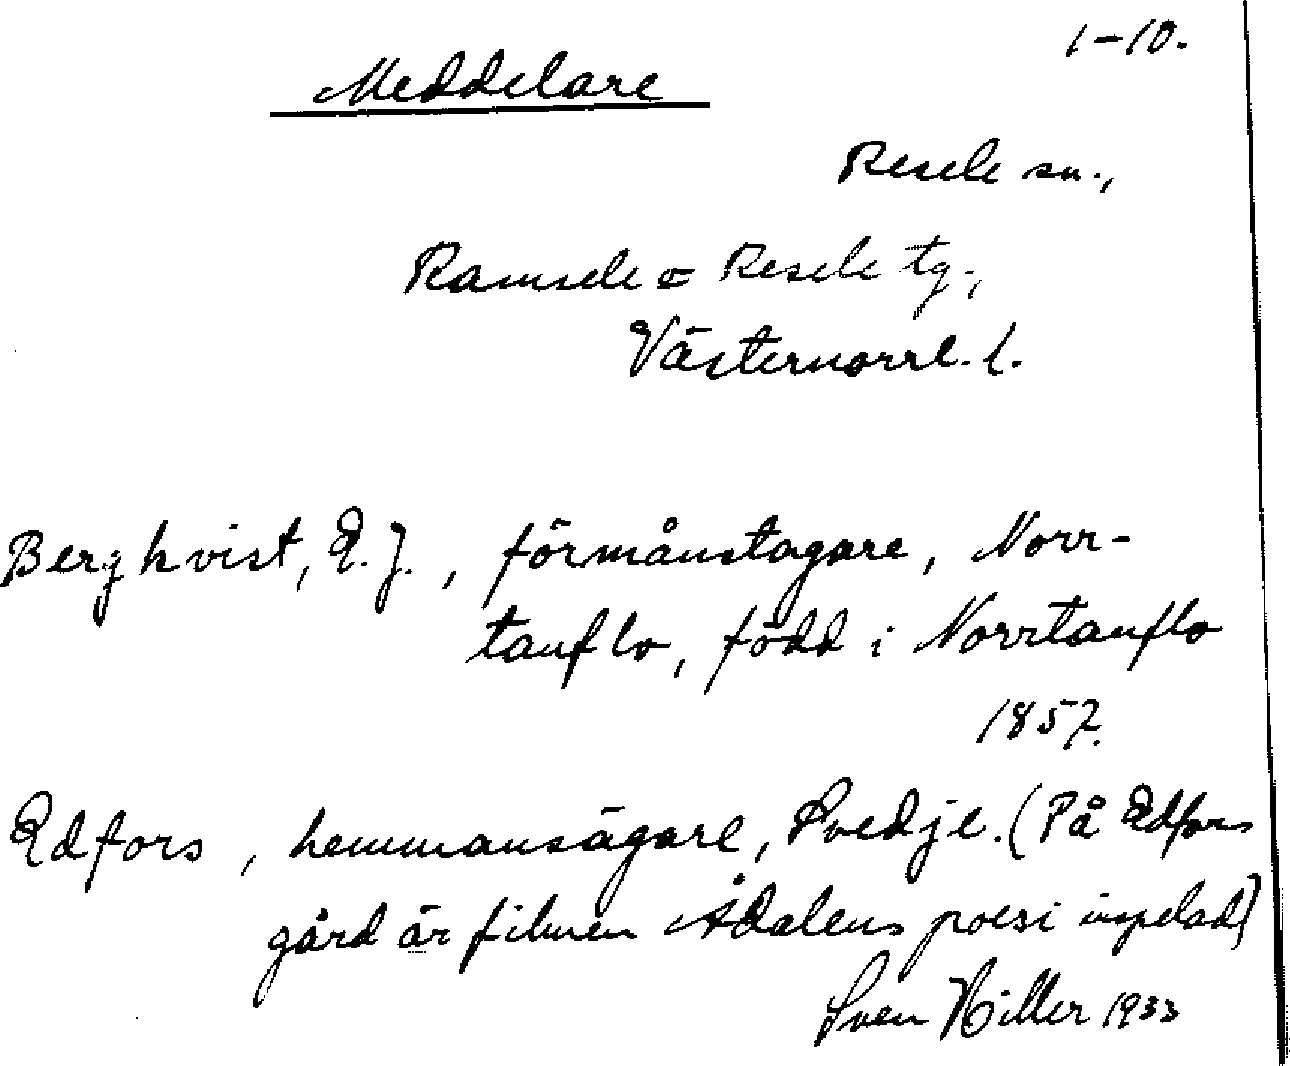 1-10.
Meddelare
Resele sn.,
Ramsele o Resele tg.,
Västernorrl. l.
Bergkvist, E. J., förmånstagare, Norr-
tanflo, född i Norrtanflo
1857.
Edfors, hemmansägare, Svedje. (På Edfors
gård är filmen Ådalens poesi inspelad)
Sven Hiller 1933